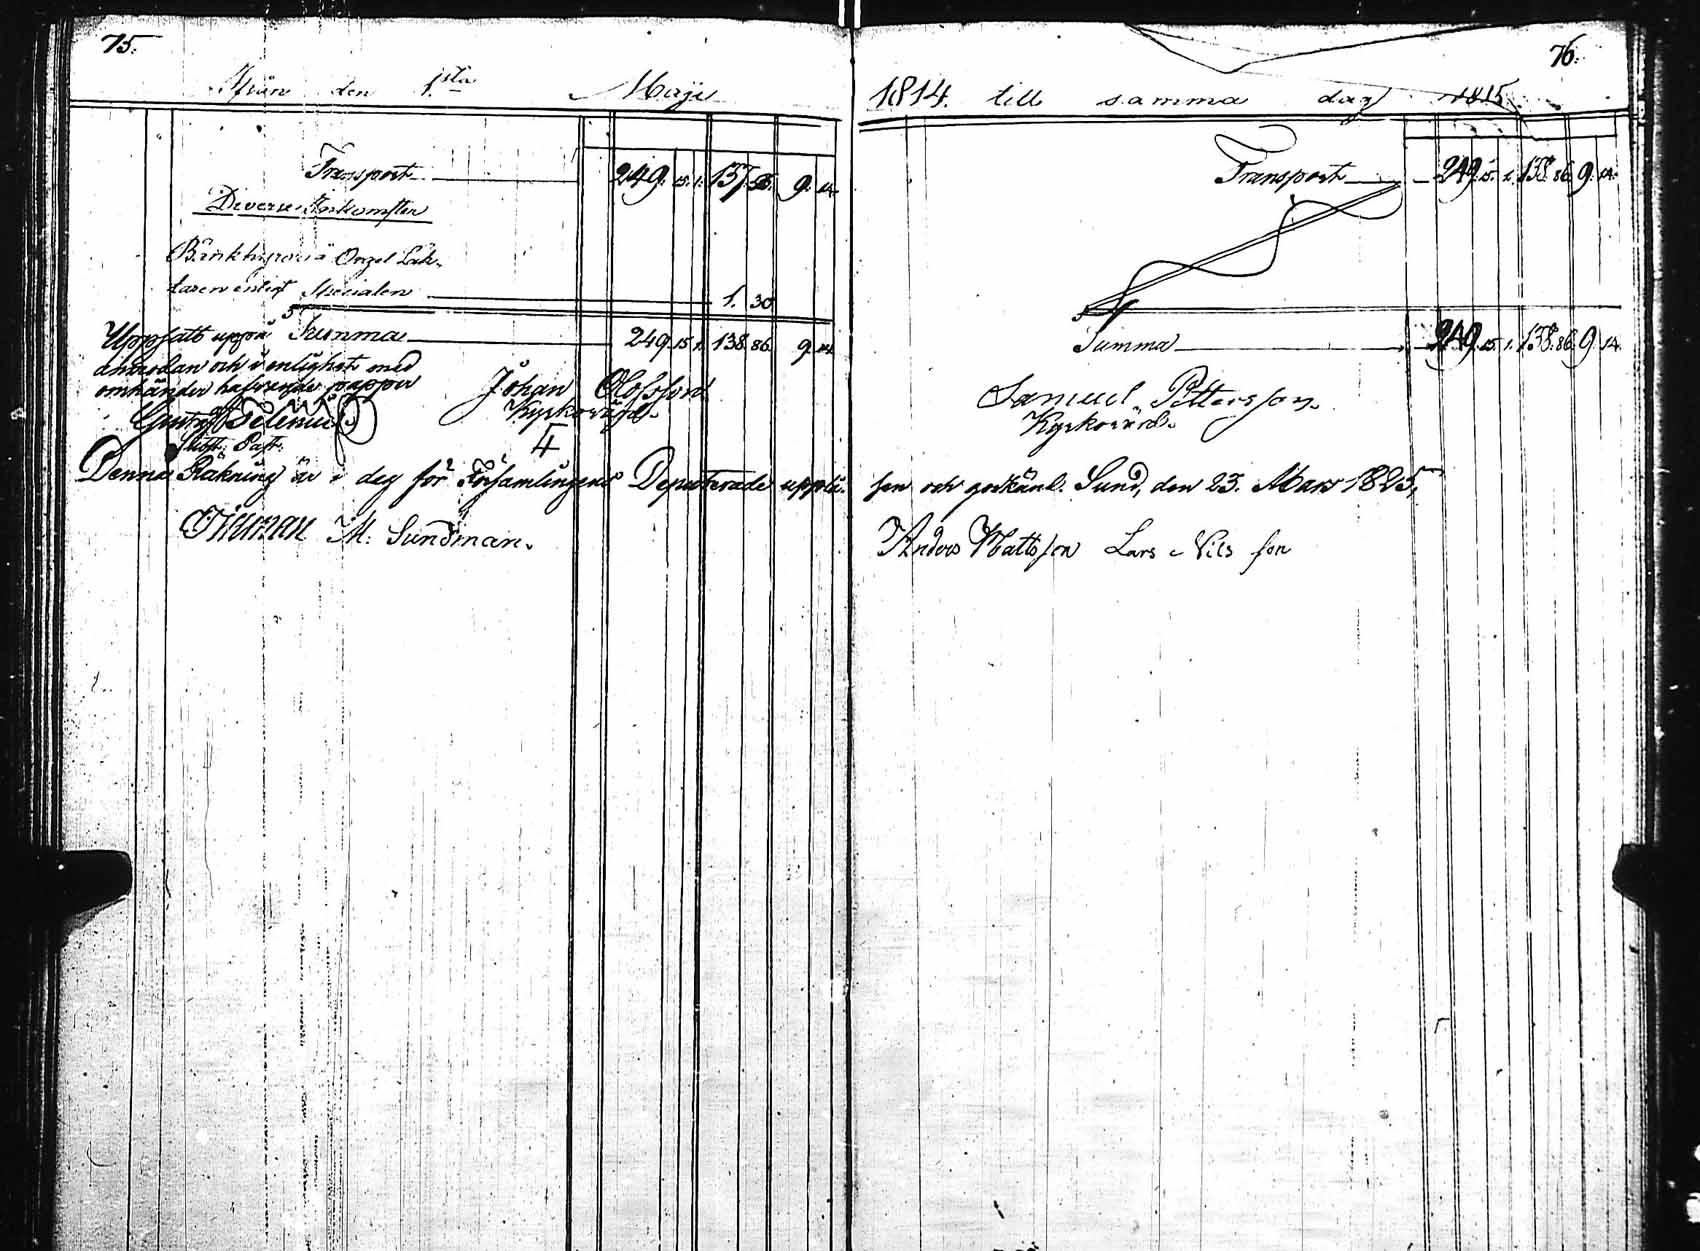 75.
Ifrån den 1sta Maji
Transport 249. 15. 1. 137. 56. 9. 14.
Diverse Inkomster
Bänkhyror å Orgel Läk-
taren enligt Specialen 1. 30
Summa 249. 15. 1. 138. 86. 9. 14.
Uppsatt uppå
anmodan och i enlighet med
omhänder hafvande papper
Gustaf
Johan Olofsson
Kyrkovärd.
Denna Räkning är i dag för Församlingens Deputerade upplä-
M: Sundman.
76.
1814. till samma dag 1815
Transport 249. 15. 1. 138. 86. 9. 14.
Summa 249. 15. 1. 138. 86. 9. 14.
Samuel Pettersson.
Kyrkovärd.
sen och godkänd. Sund, den 23. Mars 1825,
Anders Mattsson Lars Nils son